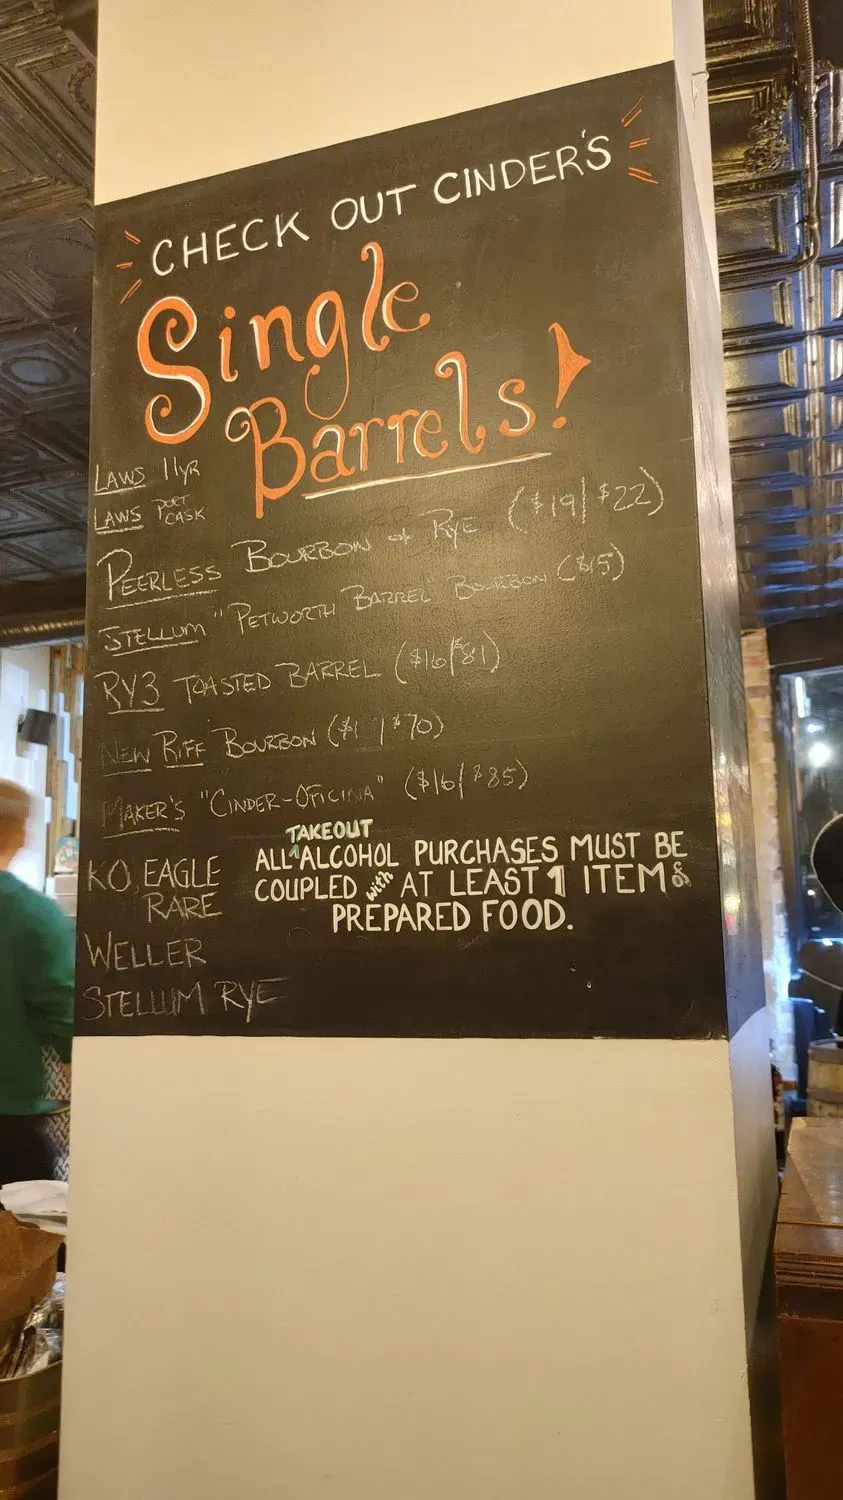 CHECK OUT CINDER'S
Single
Barrels!
LAWS 11YR
LAWS PORT CASK
PEERLESS BOURBON & RYE ($19/$22)
STELLUM "PETWORTH BARREL" BOURBON ($15)
RY3 TOASTED BARREL ($16/$81)
NEW RIFF BOURBON ( /$70)
MAKER'S "CINDER-OFICINA" ($16/$85)
TAKEOUT
ALL^ALCOHOL PURCHASES MUST BE
COUPLED with AT LEAST 1 ITEM of
PREPARED FOOD.
KO, EAGLE
RARE
WELLER
STELLUM RYE